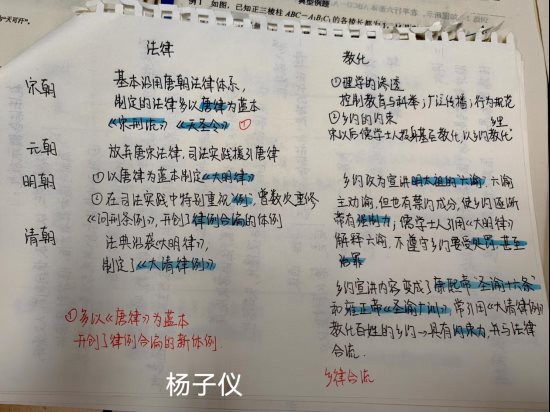 例1 如图，已知正三棱柱ABC-A₁B₁C₁的各棱长都为
法律
教化
宋朝
基本沿用唐朝法律体系，
制定的法律多以唐律为蓝本
《宋刑统》《天圣令》①
①理学的渗透
控制教育与科举；广泛传播；行为规范
②乡约的约束
宋以后儒学士人投身基层教化，以乡约教化乡里
元朝
放弃唐宋法律，司法实践援引唐律
明朝
①以唐律为蓝本制定《大明律》
②在司法实践中特别重视例，曾数次重修
《问刑条例》，开创了律例合流的体例
乡约改为宣讲明太祖的六谕，六谕
主动谕，但也有禁约成分，使乡约逐渐
带有强制力；儒学士人引用《大明律》
解释六谕，不遵守乡约要受处罚，甚至
治罪
清朝
法典沿袭《大明律》，
制定了《大清律例》
乡约宣讲内容变成了康熙帝“圣谕十六条”
和雍正帝《圣谕广训》常引用《大清律例》
教化百姓的乡约→具有约束力，并与法律
合流.
①多以《唐律》为蓝本
开创了律例合流的新体例.
乡律合流
杨子仪